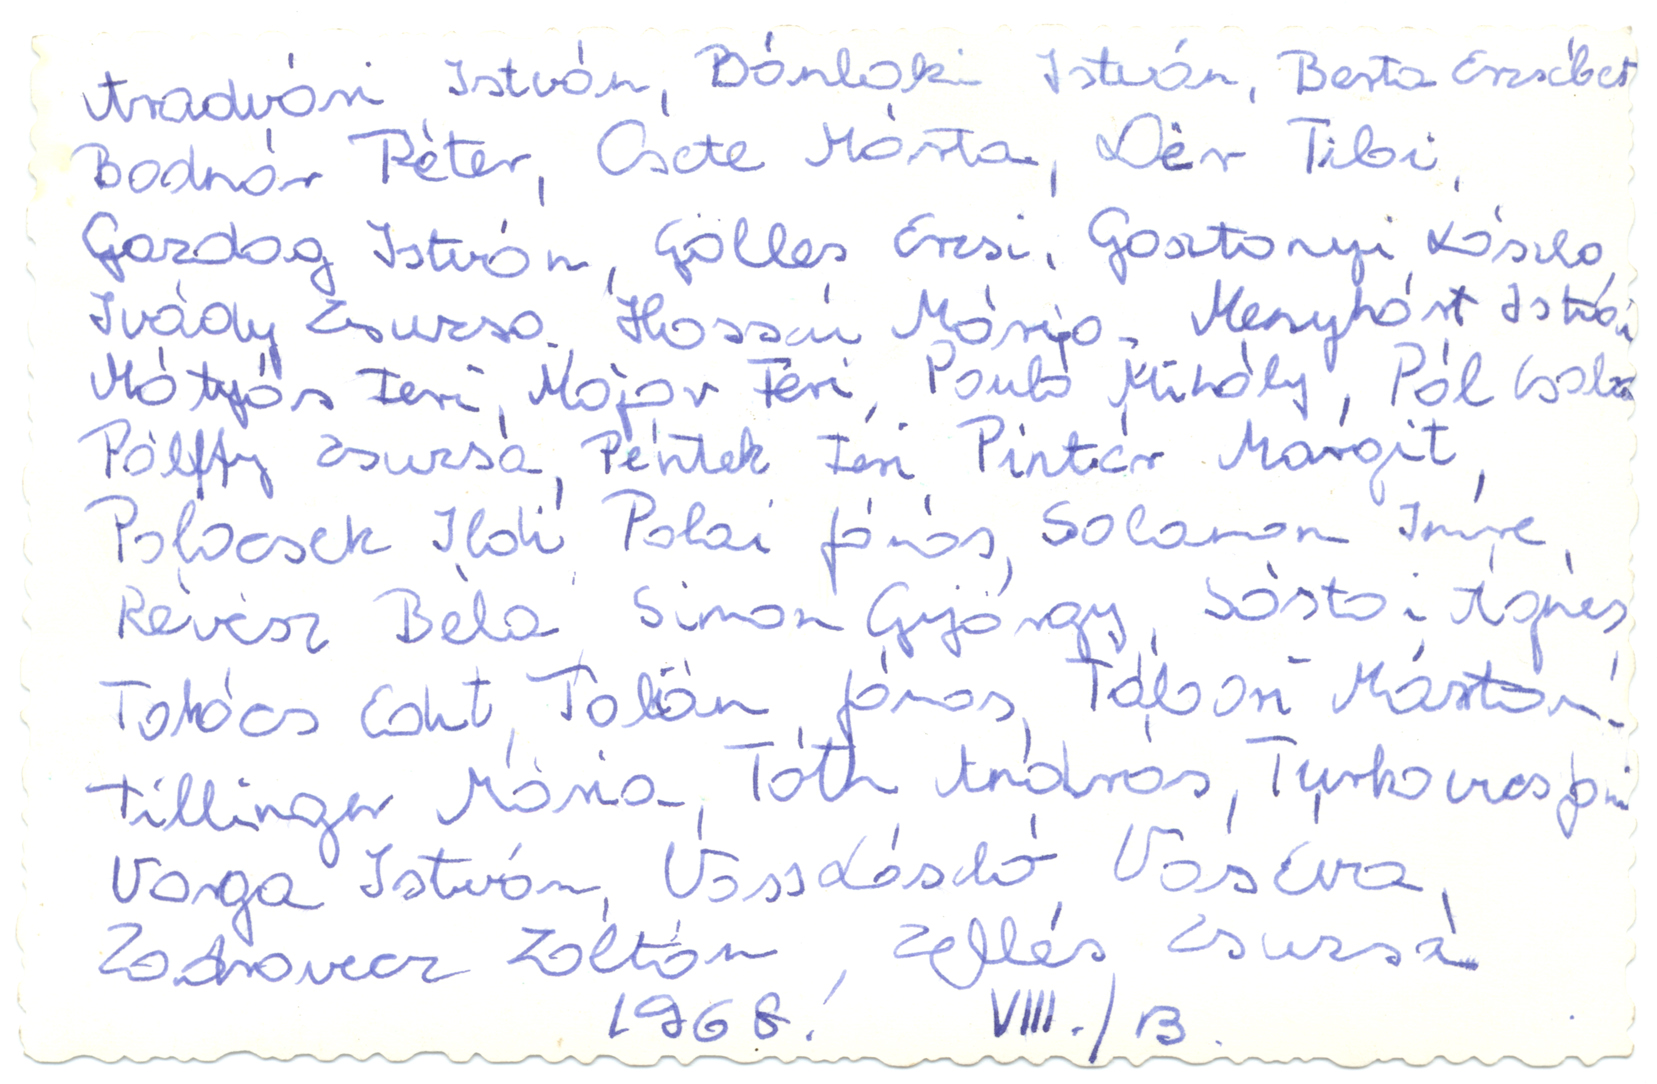 Aradvári István, Bánlaki István, Berta Erzsébet
Bodnár Péter, Csete Márta, Dér Tibi,
Gazdag István, Gölles Erzsi, Gosztonyi László,
Ivády Zsuzsa, Hosszú Mária, Menyhárt István
Mátyás Feri, Major Feri, Pauló Mihály, Pál Csaba
Pálffy Zsuzsa, Péntek Feri Pintér Margit,
Polacsek Ildi Polai János, Salamon Imre,
Révész Béla Simon György, Sóstai Ágnes,
Takács Edit, Talián János, Tábori Márton
Tillinger Mária, Tóth András, Turkovics
Varga István, Vass László Vas Éva,
Zadravecz Zoltán, Zsuzsa
1968. VIII./B.